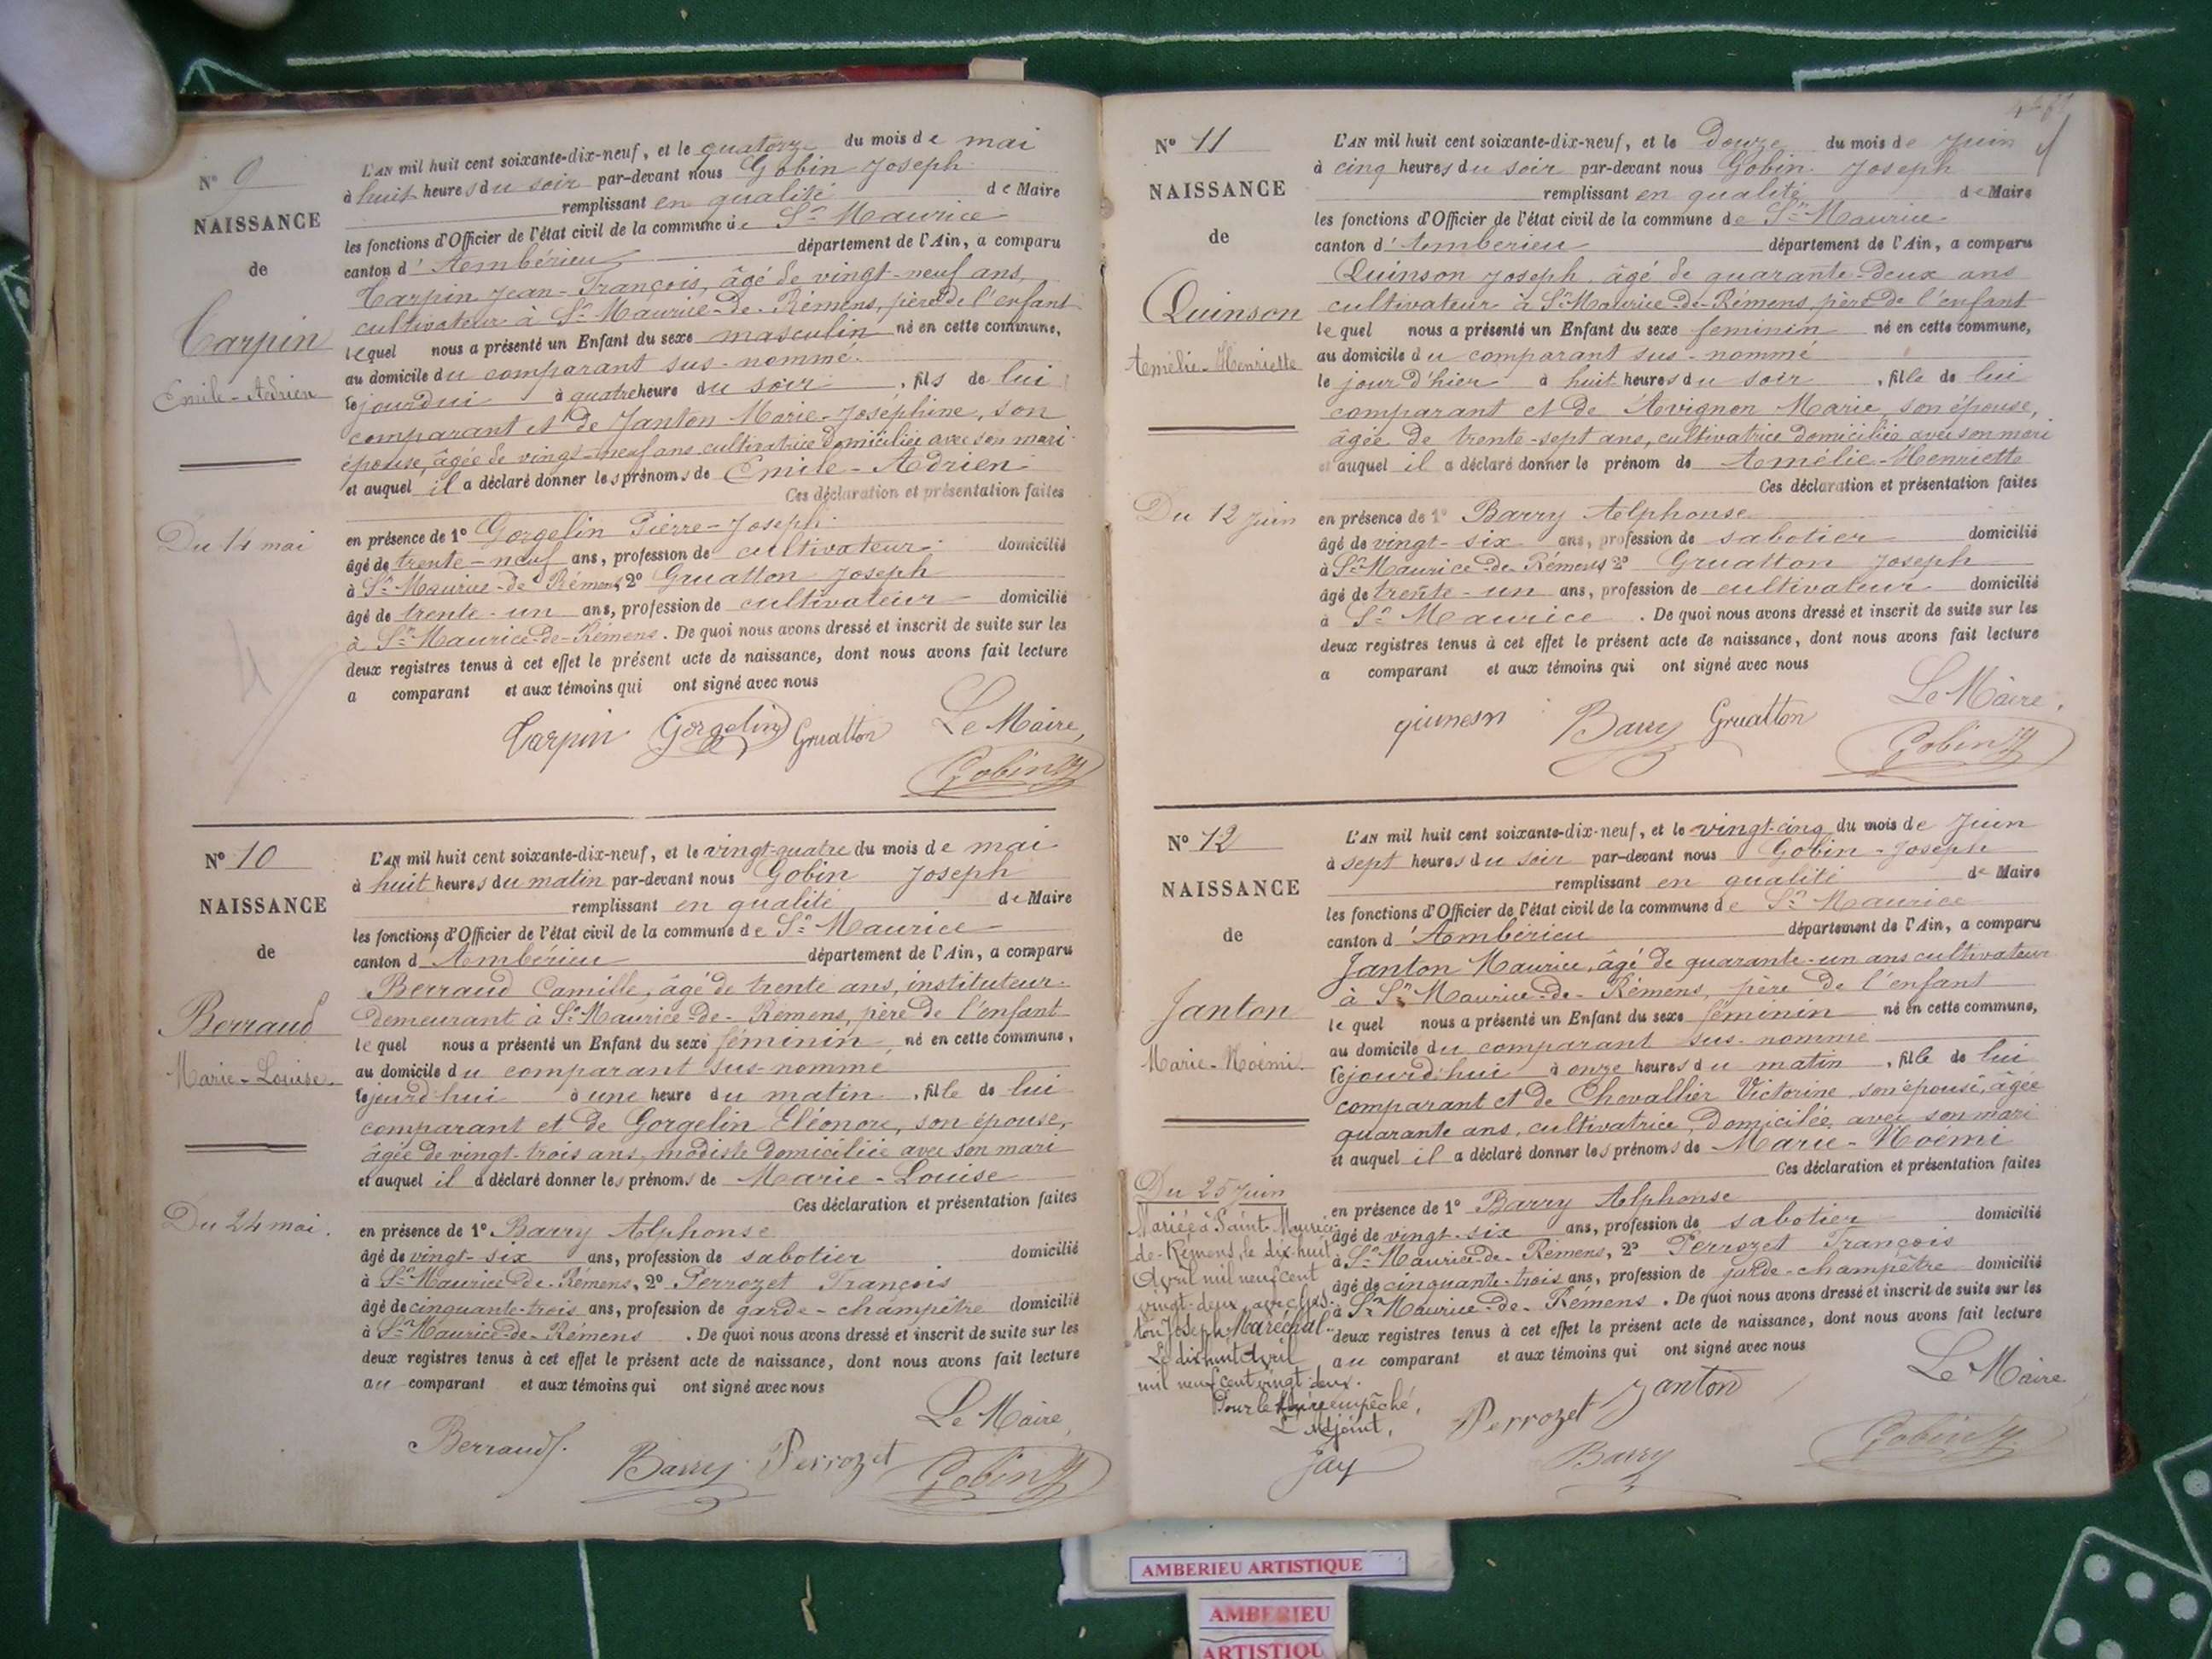 N° 9
NAISSANCE
de
Carpin
Emile-Adrien
Du 14 mai
L'AN mil huit cent soixante-dix-neuf, et le quatorze du mois de mai
à huit heures du soir par-devant nous Gobin Joseph
remplissant en qualité de Maire
les fonctions d'Officier de l'état civil de la commune de St Maurice
canton d'Ambérieu département de l'Ain, a comparu
Carpin Jean-François, âgé de vingt-neuf ans,
cultivateur à St Maurice-de-Rémens, père de l'enfant
lequel nous a présenté un Enfant du sexe masculin né en cette commune,
au domicile du comparant sus-nommé
le jourdui à quatre heure du soir, fils de lui
comparant et de Janton Marie-Joséphine, son
épouse, âgée de vingt-neuf ans cultivatrice domiciliée avec son mari
et auquel il a déclaré donner les prénoms de Emile-Adrien
Ces déclaration et présentation faites
en présence de 1° Gorgelin Pierre-Joseph
âgé de trente-neuf ans, profession de cultivateur domicilié
à St Maurice-de Rémens, 2° Gruatton Joseph
âgé de trente-un ans, profession de cultivateur domicilié
à St Maurice-de-Rémens. De quoi nous avons dressé et inscrit de suite sur les
deux registres tenus à cet effet le présent acte de naissance, dont nous avons fait lecture
a comparant et aux témoins qui ont signé avec nous
Le Maire,
Carpin Gorgelin Gruatton
Gobin
N° 10
NAISSANCE
de
Berraud
Marie-Louise
Du 24 mai.
L'AN mil huit cent soixante-dix-neuf, et le vingt-quatre du mois de mai
à huit heures du matin par-devant nous Gobin Joseph
remplissant en qualité de Maire
les fonctions d'Officier de l'état civil de la commune de St Maurice
canton d'Ambérieu département de l'Ain, a comparu
Berraud Camille, âgé de trente ans, instituteur
demeurant à St Maurice-de-Rémens, père de l'enfant
lequel nous a présenté un Enfant du sexe féminin né en cette commune,
au domicile du comparant sus-nommé
le jourd'hui à une heure du matin, fille de lui
comparant et de Gorgelin Eléonore, son épouse,
âgée de vingt-trois ans, modiste domiciliée avec son mari
et auquel il a déclaré donner les prénoms de Marie-Louise
Ces déclaration et présentation faites
en présence de 1° Barry Alphonse
âgé de vingt-six ans, profession de sabotier domicilié
à St Maurice-de-Rémens, 2° Perrozet François
âgé de cinquante-trois ans, profession de garde-champêtre domicilié
à St Maurice-de-Rémens. De quoi nous avons dressé et inscrit de suite sur les
deux registres tenus à cet effet le présent acte de naissance, dont nous avons fait lecture
au comparant et aux témoins qui ont signé avec nous
Le Maire,
Berraud Barry Perrozet Gobin
N° 11
NAISSANCE
de
Quinson
Amélie-Henriette
Du 12 juin
L'AN mil huit cent soixante-dix-neuf, et le Douze du mois de juin
à cinq heures du soir par-devant nous Gobin Joseph
remplissant en qualité de Maire
les fonctions d'Officier de l'état civil de la commune de St Maurice
canton d'Ambérieu département de l'Ain, a comparu
Quinson Joseph âgé de quarante-deux ans
cultivateur à St Maurice-de-Rémens, père de l'enfant
lequel nous a présenté un Enfant du sexe feminin né en cette commune,
au domicile du comparant sus-nommé
le jour d'hier à huit heures du soir, fille de lui
comparant et de Avignon Marie, son épouse,
âgée de trente-sept ans, cultivatrice domiciliée avec son mari
et auquel il a déclaré donner le prénom de Amélie-Henriette
Ces déclaration et présentation faites
en présence de 1° Barry Alphonse
âgé de vingt-six ans, profession de sabotier domicilié
à St Maurice-de-Rémens, 2° Gruatton Joseph
âgé de trente-un ans, profession de cultivateur domicilié
à St Maurice. De quoi nous avons dressé et inscrit de suite sur les
deux registres tenus à cet effet le présent acte de naissance, dont nous avons fait lecture
a comparant et aux témoins qui ont signé avec nous
Le Maire,
Barry Gruatton
Gobin
N° 12
NAISSANCE
de
Janton
Marie-Noémi
Du 25 juin
Mariée à Saint-Maurice-
de-Rémens, le dix-huit
Avril mil neuf cent
vingt-deux avec
Joseph Maréchal
Le dix huit Avril
mil neuf cent vingt-deux.
Pour le Maire empêché,
L'Adjoint,
Jay
L'AN mil huit cent soixante-dix-neuf, et le vingt-cinq du mois de juin
à sept heures du soir par-devant nous Gobin-Joseph
remplissant en qualité de Maire
les fonctions d'Officier de l'état civil de la commune de St Maurice
canton d'Ambérieu département de l'Ain, a comparu
Janton Maurice, âgé de quarante-un ans cultivateur
à St Maurice-de-Rémens, père de l'enfant
lequel nous a présenté un Enfant du sexe féminin né en cette commune,
au domicile du comparant sus-nommé
le jourd'hui à onze heures du matin, fille de lui
comparant et de Chevallier Victorine son épouse, âgée
quarante ans, cultivatrice, domicilée avec son mari
et auquel il a déclaré donner les prénoms de Marie-Noémi
Ces déclaration et présentation faites
en présence de 1° Barry Alphonse
âgé de vingt-six ans, profession de sabotier domicilié
à St Maurice-de-Rémens, 2° Perrozet François
âgé de cinquante-trois ans, profession de garde-champêtre domicilié
à St Maurice-de-Rémens. De quoi nous avons dressé et inscrit de suite sur les
deux registres tenus à cet effet le présent acte de naissance, dont nous avons fait lecture
au comparant et aux témoins qui ont signé avec nous
Le Maire
Perrozet Janton
Barry Gobin
AMBERIEU ARTISTIQUE
AMBERIEU
ARTISTIQU